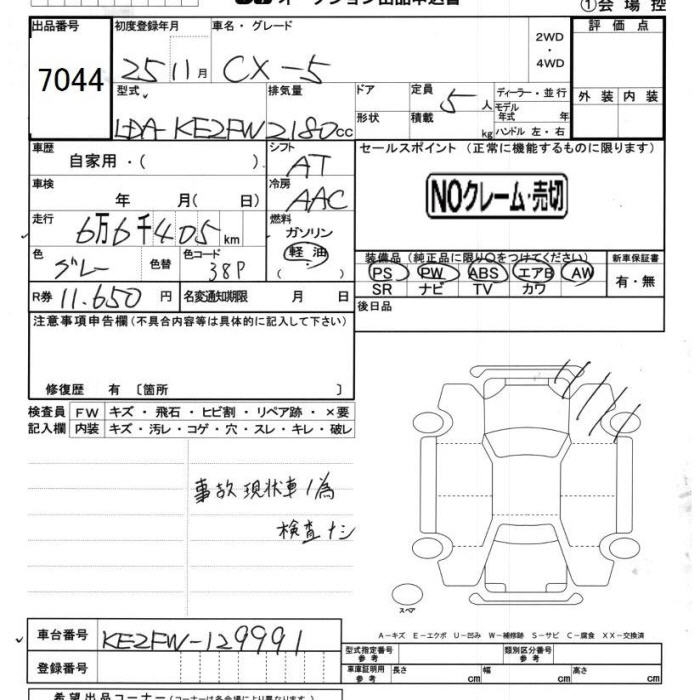 オークション出品申込書
①会場控
出品番号
7044
初度登録年月
25 11月
車名・グレード
CX-5
2WD
・
4WD
評価点
外装 内装
型式
LDA-KE2FW
排気量
2180cc
ドア
形状
定員
5人
積載
kg
ディーラー・並行
モデル年式 年
ハンドル 左・右
車歴
自家用・( )
シフト
AT
セールスポイント (正常に機能するものに限ります)
NOクレーム・売切
車検
年 月( 日)
冷房
AAC
走行
6万6千405km
燃料
ガソリン
軽油
( ・ )
色
グレー
色替
色コード
38P
装備品 (純正品に限り○をつけてください)
PS PW ABS エアB AW
SR ナビ TV カワ
新車保証書
有・無
R券 11.650 円
名変通知期限 月 日
後日品
注意事項申告欄(不具合内容等は具体的に記入して下さい)
修復歴 有 〔箇所 〕
検査員 FW キズ・飛石・ヒビ割・リペア跡・×要
記入欄 内装 キズ・汚レ・コゲ・穴・スレ・キレ・破レ
事故現状車ノ為
検査ナシ
スペア
A-キズ E-エクボ U-凹み W-補修跡 S-サビ C-腐食 XX-交換済
車台番号 KE2FW-129991
登録番号
型式指定番号
参考
類別区分番号
参考
車庫証明用
参考
長さ cm 幅 cm 高さ cm
希望出品コーナー(コーナーは各会場により異なります)